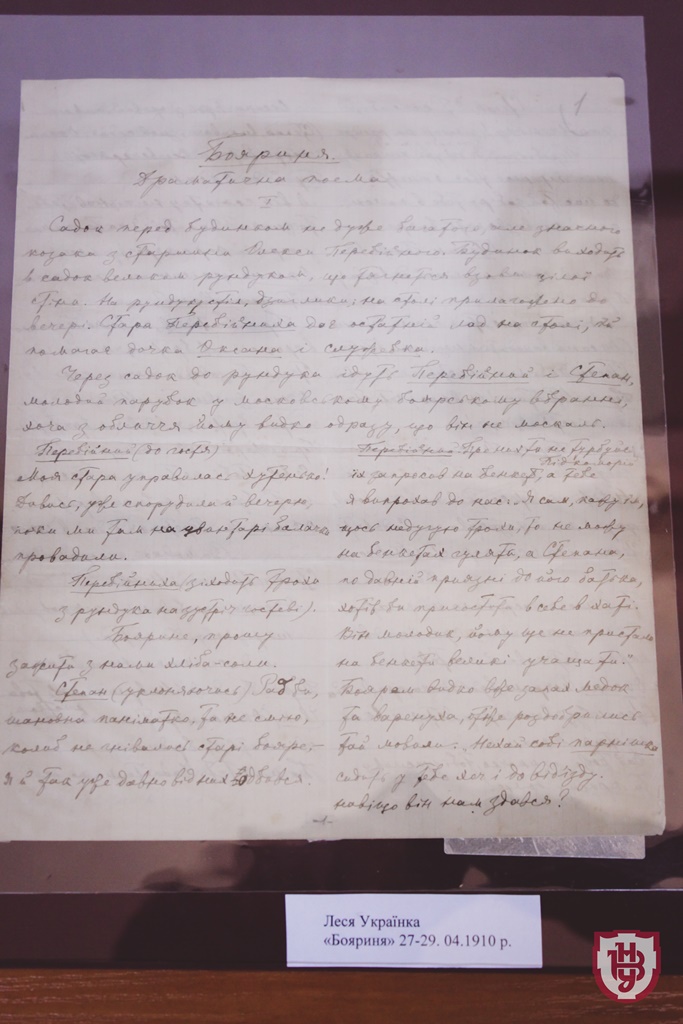 1
Бояриня.
Драматична поема
I
Садок перед будинком не дуже багатого, але значного
козака з старшини Олекси Перебійного. Будинок виходить
в садок великим рундуком, що тягнеться вздовж цілої
стіни. На рундуку стіл, дзиглики; на столі прилагожено до
вечері. Стара Перебійниха дає останній лад на столі, їй
помагає дочка Оксана і служебка.
Через садок до рундука ідуть Перебійний і Степан,
молодий парубок у московському боярському вбранні,
хоча з обличчя йому видко одразу, що він не москаль.
Перебійний (до гостя)
Моя стара управилась хутенько!
Дивись, уже спорудила й вечерю,
поки ми там на цвинтарі балачки
провадили.
Перебійниха (зіходить трохи
з рундука назустріч гостеві).
Боярине, прошу
закусити з нами хліба-соли.
Степан (уклоняючись) Рад би,
шановна паніматко, та не смію,
колиб не гнівалось старі бояре,—
я й так уже давно від них одбився.
Перебійний. Про не то не турбуйся
Підкоморій
їх запросив на бенкет, а тебе
я випрохав до нас. Я сам, кажу їм,
щось недугую трохи, то не можу
на бенкетах гулять, а Степана,
по давній приязні до його батька,
хотів би пригостити в себе в хаті.
Він молодик, йому ще не пристало
на бенкети великі учащати."
Боярам видко вже запах медок
та варенуха, отже роздобрились
тай мовили: Нехай собі парнішка
сидить у тебе хоч і до від'їзду.
навіщо він нам здався?
-1-
Леся Українка
«Бояриня» 27-29. 04.1910 р.